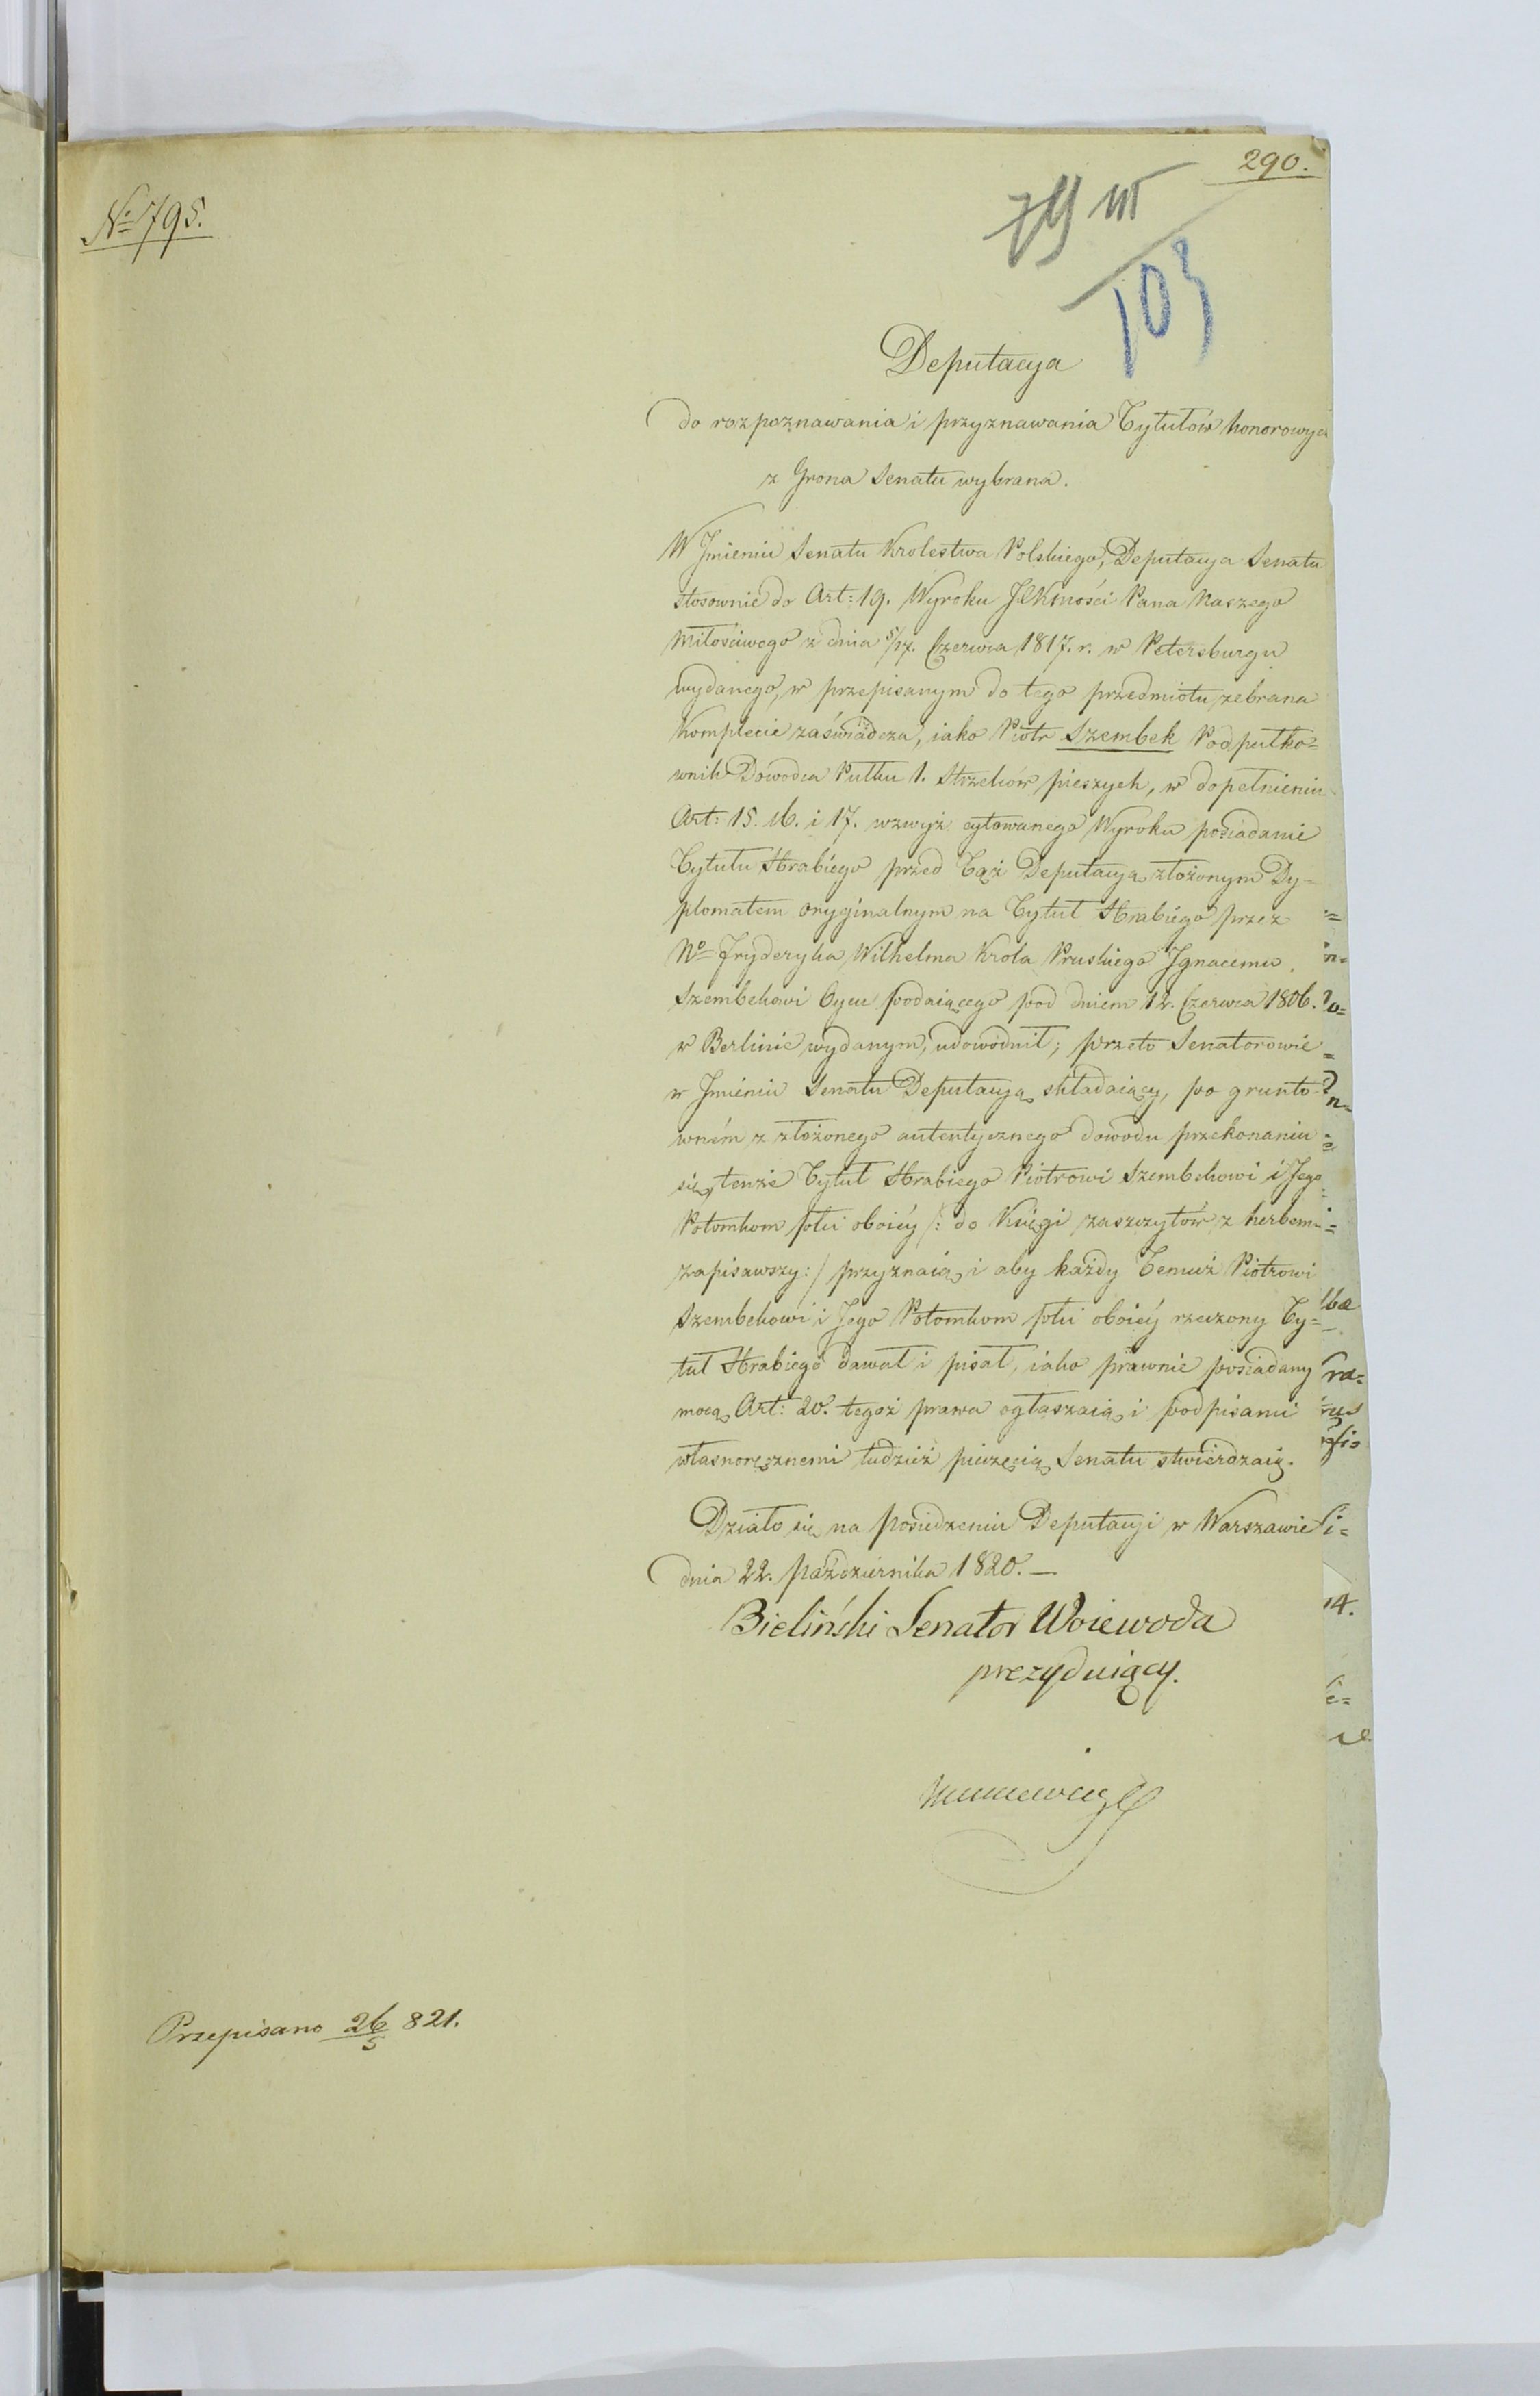 290.
No 795.
79 III
103
Deputacya
do rozpoznawania i przyznawania Tytułów honorowych
z Grona Senatu wybrana.
W Jmieniu Senatu Krolestwa Polskiego, Deputacya Senatu
stosownie do Art: 19. Wyroku JCKMości Pana Naszego
Miłosciwego z dnia 5/17. Czerwca 1817. r. w Petersburgu
wydanego, w przepisanym do tego przedmiotu zebrana
Komplecie zaświadcza, iako Piotr Szembek Podpułko=
wnik Dowodca Pułku 1. Strzelców pieszych, w dopełnieniu
Art: 15. 16. i 17. wzwyż cytowanego Wyroku posiadanie
Tytułu Hrabiego przed Tąż Deputacyą złożonym Dy=
plomatem oryginalnym na Tytuł Hrabiego przez
No Fryderyka Wilhelma Krola Pruskiego Jgnacemu
Szembekowi Oycu podaiącego pod dniem 12. Czerwca 1806.
w Berlinie wydanym, udowodnił; przeto Senatorowie
w Jmieniu Senatu Deputacyą składaiący, po grunto=
wném z złożonego autentycznego dowodu przekonaniu
się, tenże Tytuł Hrabiego Piotrowi Szembekowi i Jego
Potomkom płci oboiéy /: do Księgi zaszczytów z herbem
zapisawszy :/ przyznaią, i aby każdy Temuż Piotrowi
Szembekowi i Jego Potomkom płci oboiéy rzeczony Ty=
tuł Hrabiego dawał i pisał, iako prawnie posiadany
mocą Art: 20. tegoż prawa ogłaszaią, i podpisami
własnoręcznemi tudzież pieczęcią Senatu stwierdzaią.
Działo się na posiedzeniu Deputacyi w Warszawie
dnia 22. października 1820. —
Bieliński Senator Woiewoda
prezyduiący.
Przepisano 26/5 821.